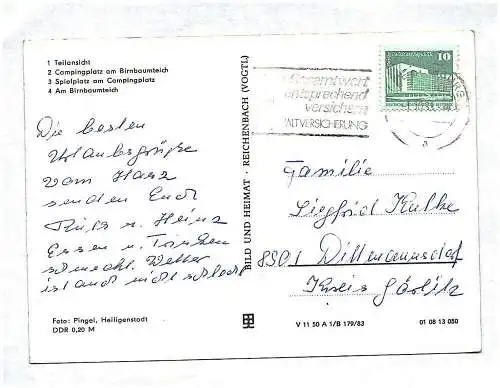 1 Teilansicht
2 Campingplatz am Birnbaumteich
3 Spielplatz am Campingplatz
4 Am Birnbaumteich
Die besten
Urlaubsgrüße
vom Harz
senden Euch
Ruth u. Heinz
Essen u. trinken
schmeckt. Wetter
ist auch nicht schlecht
Foto: Pingel, Heiligenstadt
DDR 0,20 M
BILD UND HEIMAT · REICHENBACH (VOGTL)
entsprechend
versichern
ALTVERSICHERUNG
10
a
Familie
Siegfried Kulke
8501 Dittmannsdorf
Kreis Görlitz
V 11 50 A 1/B 179/83
01 08 13 050